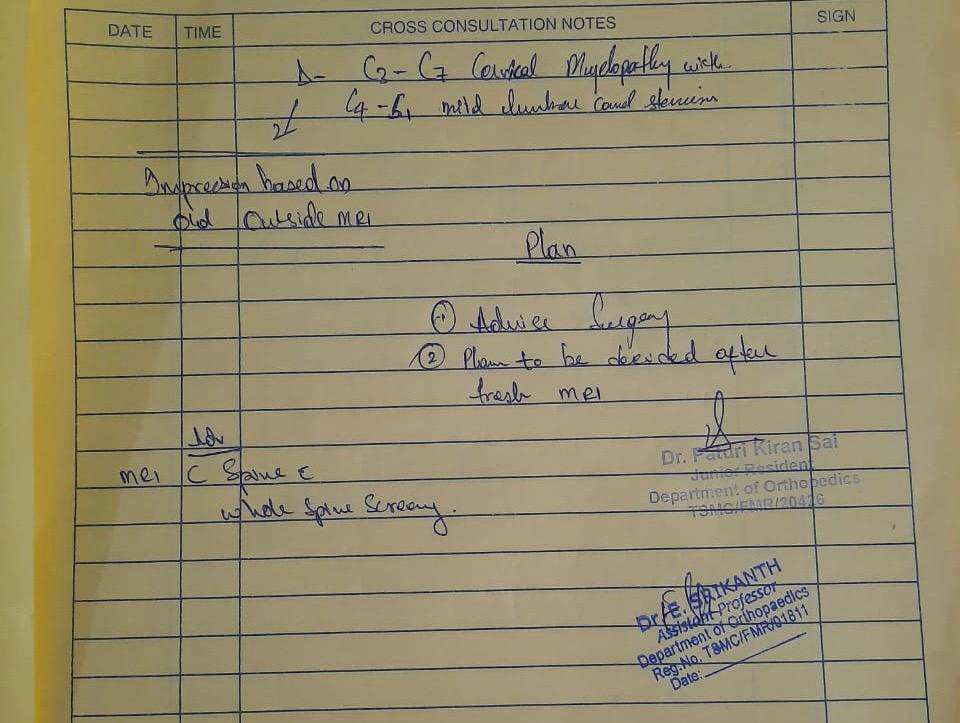 DATE TIME CROSS CONSULTATION NOTES SIGN
Δ- C3 – C7 Cervical Myelopathy with
mild lumbar canal stenosis
Impression based on
old Outside MRI
Plan
① Advice Surgery
② Plan to be decided after
fresh MRI
Adv
MRI C Spine c
whole Spine Screeny.
Dr. Patdri Kiran Sai
Junior Resident
Department of Orthopedics
TSMC/FMR/20426
Dr. E. SRIKANTH
Assistant Professor
Department of Orthopaedics
Reg.No. TSMC/FMR/01811
Date: